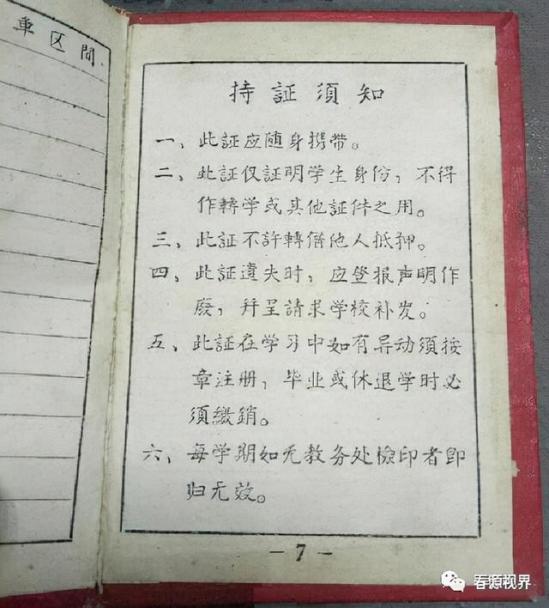 車区間
持証須知
一、此証应随身携帶。
二、此証仅証明学生身份，不得
作轉学或其他証件之用。
三、此証不許轉借他人抵押。
四、此証遺失时，应登报声明作
廢，幷呈請求学校补发。
五、此証在学习中如有异动須按
章注册，毕业或休退学时必
須繳銷。
六、每学期如无教务处檢印者即
归无效。
－7－
春源视界